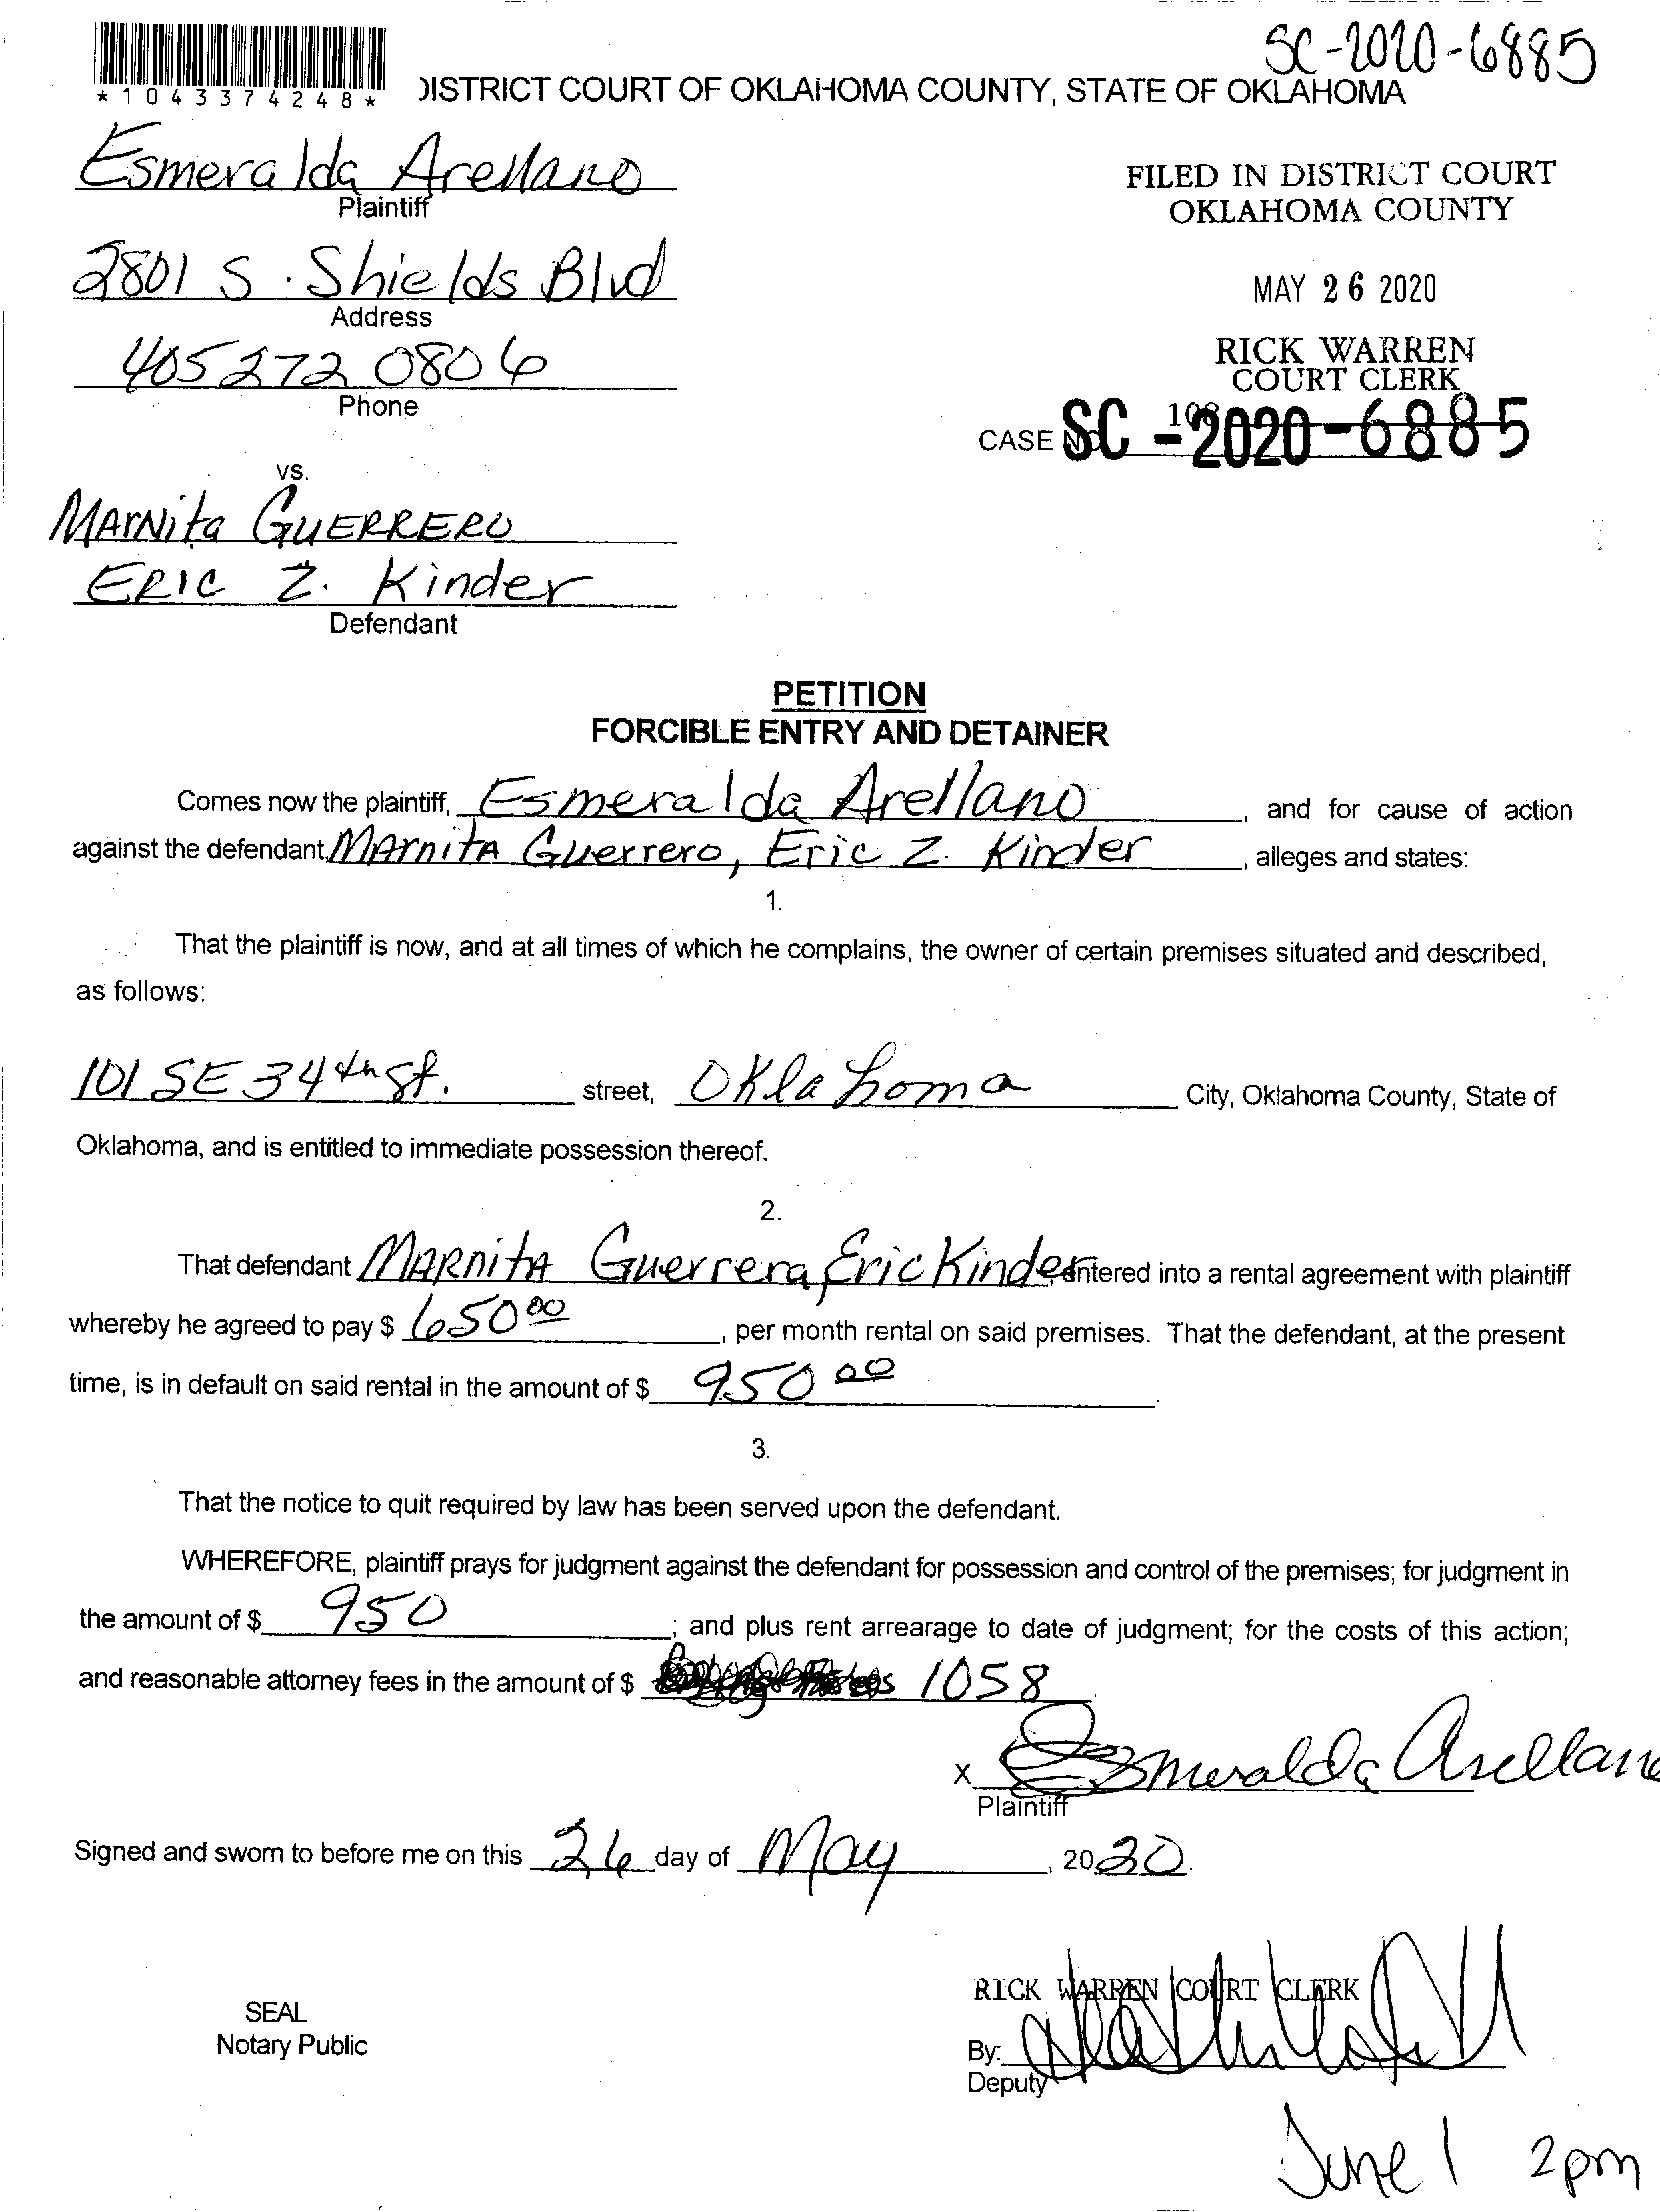 SC-2020-6885
*1043374248*
DISTRICT COURT OF OKLAHOMA COUNTY, STATE OF OKLAHOMA
Esmeralda Arellano
Plaintiff
FILED IN DISTRICT COURT
OKLAHOMA COUNTY
2801 S. Shields Blvd
Address
MAY 26 2020
405 272 0806
Phone
RICK WARREN
COURT CLERK
CASE NO. SC -2020-6885
vs.
MArNita GUERRERO
ERIC Z. Kinder
Defendant
PETITION
FORCIBLE ENTRY AND DETAINER
Comes now the plaintiff, Esmeralda Arellano, and for cause of action
against the defendant, MArnitA Guerrero, Eric Z. Kinder, alleges and states:
1.
That the plaintiff is now, and at all times of which he complains, the owner of certain premises situated and described,
as follows:
101 SE 34th st. street, Oklahoma City, Oklahoma County, State of
Oklahoma, and is entitled to immediate possession thereof.
2.
That defendant MARnitA Guerrera, Eric Kinder entered into a rental agreement with plaintiff
whereby he agreed to pay $ 650 00, per month rental on said premises. That the defendant, at the present
time, is in default on said rental in the amount of $ 950 00.
3.
That the notice to quit required by law has been served upon the defendant.
WHEREFORE, plaintiff prays for judgment against the defendant for possession and control of the premises; for judgment in
the amount of $ 950; and plus rent arrearage to date of judgment; for the costs of this action;
and reasonable attorney fees in the amount of $ 1058
x Esmeralda Arellano
Plaintiff
Signed and sworn to before me on this 26 day of May, 2020.
RICK WARREN COURT CLERK
SEAL
Notary Public
By:
Deputy
June 1 2pm